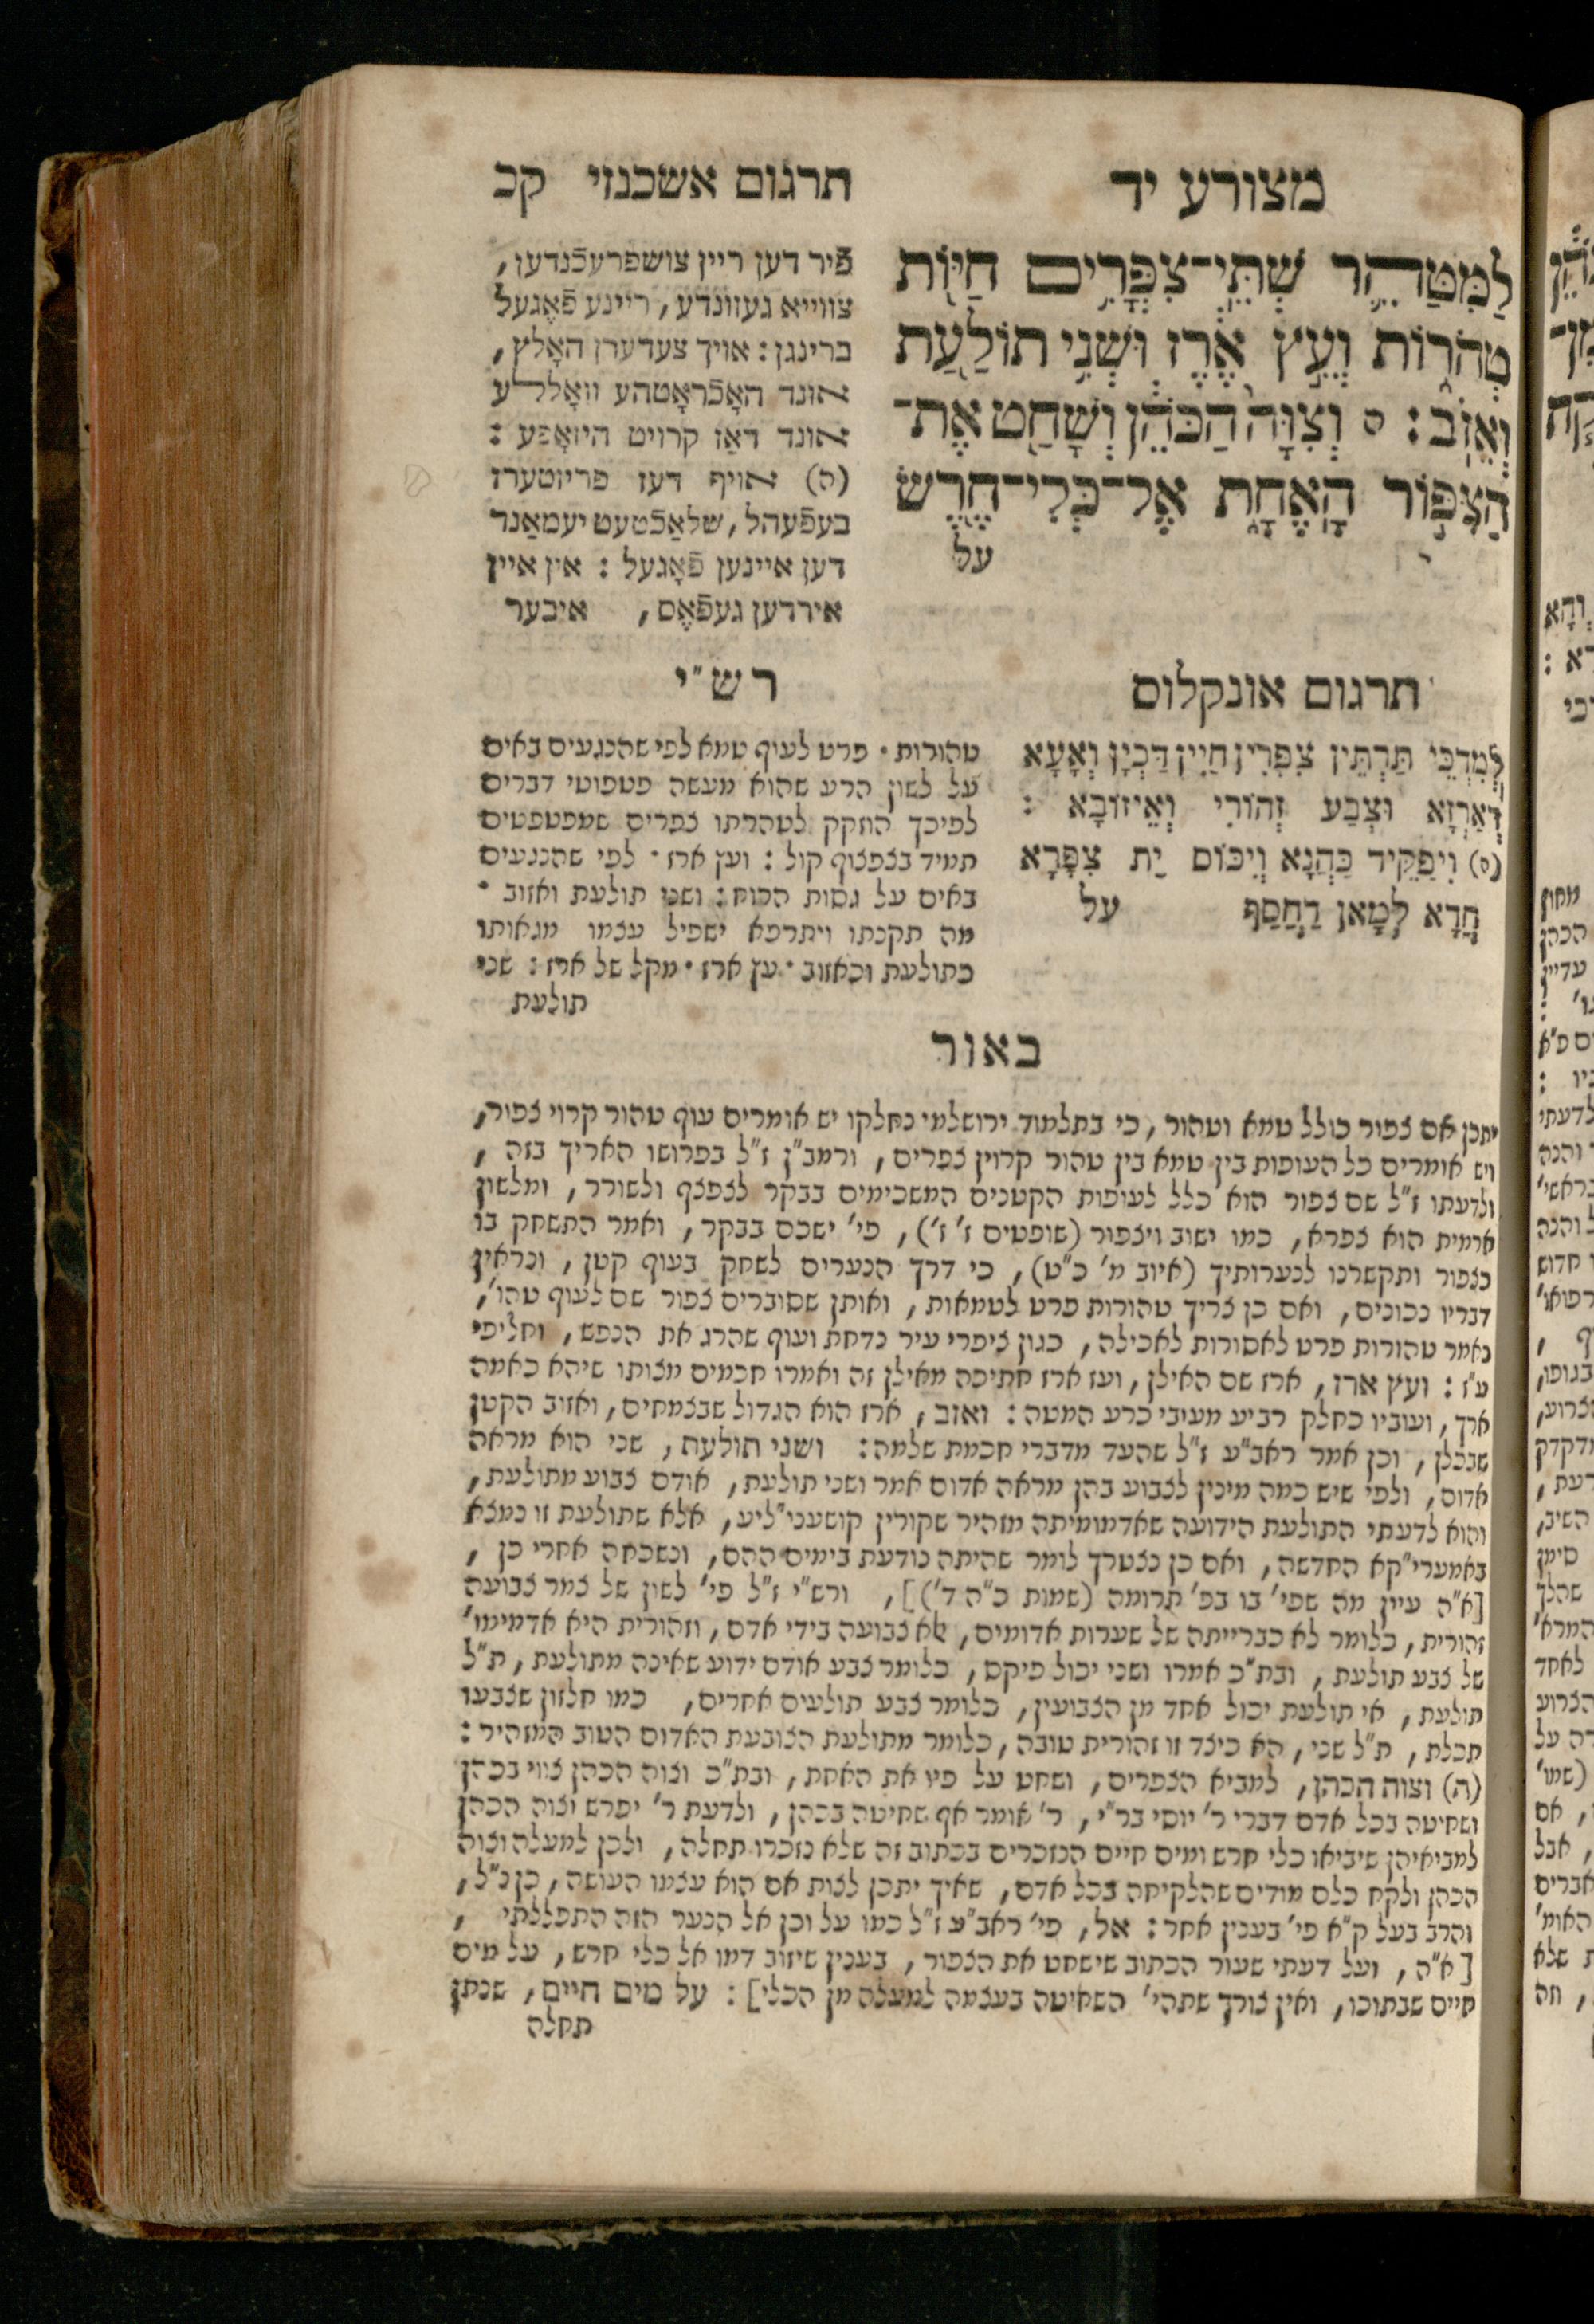 מצורע יד
תרגום אשכנזי קכ
לַמִּטַּהֵ֛ר שְׁתֵּֽי־צִפֳּרִ֥ים חַיּ֖וֹת
טְהֹר֑וֹת וְעֵ֣ץ אֶ֔רֶז וּשְׁנִ֥י תוֹלַ֖עַת
וְאֵזֹֽב׃ ה וְצִוָּה֙ הַכֹּהֵ֔ן וְשָׁחַ֖ט אֶת־
הַצִּפּ֣וֹר הָאֶחָ֑ת אֶל־כְּלִי־חֶ֖רֶשׂ
על
פֿיר דען ריין צושפרעכֿנדען,
צווייא געזונדע, ריינע פֿאָגעל
ברינגן: אויך צעדערן האָלץ,
אונד האָכֿראָטהע וואָללע
אונד דאַז קרויט היזאָפע:
(ה) אויף דעז פריזטערז
בעפֿעהל, שלאַכֿטעט יעמאַנד
דען איינען פֿאָגעל: אין איין
אירדען געפֿאֶס, איבער
תרגום אונקלוס
לְמִדְכֵּי תַּרְתֵּין צִפְּרִין חַיִּין דַּכְיָן וְאָעָא
דְאַרְזָא וּצְבַע זְהוֹרִי וְאֵיזוֹבָא :
(ה) וִיפַקֵּיד כַּהֲנָא וְיִכּוֹס יַת צִפְּרָא
חֲדָא לְמָאן דַּחֲסַף על
רש"י
טהורות · פרט לעוף טמא לפי שהנגעים באים
על לשון הרע שהוא מעשה פטפוטי דברים
לפיכך הוזקק לטהרתו צפרים שמפטפטים
תמיד בצפצוף קול: ועץ ארז · לפי שהנגעים
באים על גסות הרוח: ושני תולעת ואזוב ·
מה תקנתו ויתרפא ישפיל עצמו מגאותו
כתולעת וכאזוב · עץ ארז · מקל של ארז: שני
תולעת
באור
יתכן אם צפור כולל טמא וטהור, כי בתלמוד ירושלמי נחלקו יש אומרים עוף טהור קרוי צפור,
ויש אומרים כל העופות בין טמא בין טהור קרוין צפרים, ורמב"ן ז"ל בפרושו האריך בזה,
ולדעתו ז"ל שם צפור הוא כלל לעופות הקטנים המשכימים בבקר לצפצף ולשורר, ומלשון
ארמית הוא צפרא, כמו ישוב ויצפור (שופטים ז' ז'), פי' ישכם בבקר, ואמר התשחק בו
כצפור ותקשרנו לנערותיך (איוב מ' כ"ט), כי דרך הנערים לשחק בעוף קטן, ונראין
דבריו נכונים, ואם כן צריך טהורות פרט לטמאות, ואותן שסוברים צפור שם לעוף טהו',
נאמר טהורות פרט לאסורות לאכילה, כגון ציפרי עיר נדחת ועוף שהרג את הנפש, וחליפי
ע"ז: ועץ ארז, ארז שם האילן, ועז ארז חתיכה מאילן זה ואמרו חכמים מצותו שיהא כאמה
ארך, ועוביו כחלק רביע מעובי כרע המטה: ואזב, ארז הוא הגדול שבצמחים, ואזוב הקטן
שבכלן, וכן אמר ראב"ע ז"ל שהעד מדברי חכמת שלמה: ושני תולעת, שני הוא מראה
אדום, ולפי שיש כמה מינין לצבוע בהן מראה אדום אמר ושני תולעת, אודם צבוע מתולעת,
והוא לדעתי התולעת הידועה שאדמומיתה מזהיר שקורין קושעני"ליע, אלא שתולעת זו נמצא
באמערי"קא החדשה, ואם כן נצטרך לומר שהיתה נודעת בימים ההם, ונשכחה אחרי כן,
[א"ה עיין מה שפי' בו בפ' תרומה (שמות כ"ה ד')], ורש"י ז"ל פי' לשון של צמר צבועה
זהורית, כלומר לא כברייתה של שערות אדומים, אלא צבועה בידי אדם, וזהורית היא אדמימו'
של צבע תולעת, ובת"כ אמרו ושני יכול פיקס, כלומר צבע אודם ידוע שאינה מתולעת, ת"ל
תולעת, אי תולעת יכול אחד מן הצבועין, כלומר צבע תולעים אחרים, כמו חלזון שצבעו
תכלת, ת"ל שני, הא כיצד זו זהורית טובה, כלומר מתולעת הצובעת האדום הטוב המזהיר:
(ה) וצוה הכהן, למביא הצפרים, ושחט על פיו את האחת, ובת"כ וצוה הכהן צווי בכהן
ושחיטה בכל אדם דברי ר' יוסי בר"י, ר' אומר אף שחיטה בכהן, ולדעת ר' יפרש וצוה הכהן
למביאיהן שיביאו כלי חרש ומים חיים הנזכרים בכתוב זה שלא נזכרו תחלה, ולכן למעלה וצוה
הכהן ולקח כלם מודים שהלקיחה בכל אדם, שאיך יתכן לצות אם הוא עצמו העושה, כן נ"ל,
והרב בעל ק"א פי' בענין אחר: אל, פי' ראב"ע ז"ל כמו על וכן אל הנער הזה התפללתי,
[א"ה, ועל דעתי שעור הכתוב שישחט את הצפור, בענין שיזוב דמו אל כלי חרש, על מים
חיים שבתוכו, ואין צורך שתהי' השחיטה בעצמה למעלה מן הכלי]: על מים חיים, שנתן
תחלה